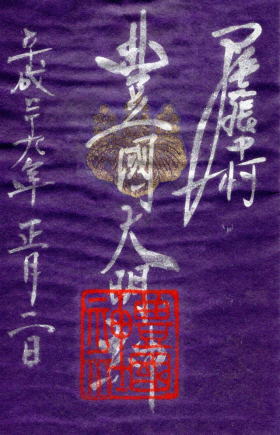 尾張中村
豊國大明神
平成二十九年 正月二日
豊國神社